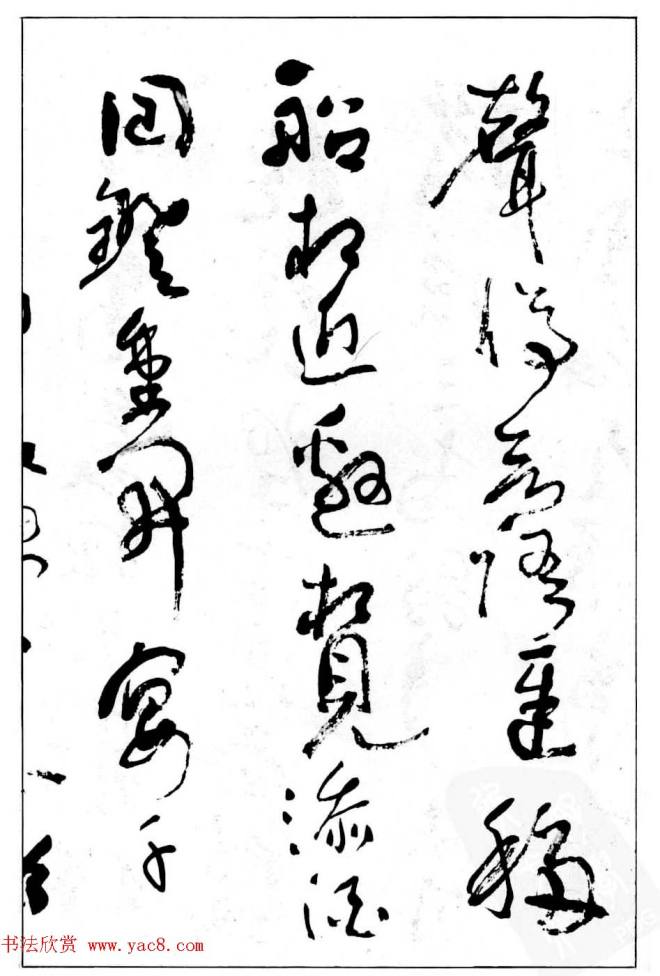 聲停欲語遲移
船相近邀相見添酒
回鐙重開宴千
书法欣赏 www.yac8.com